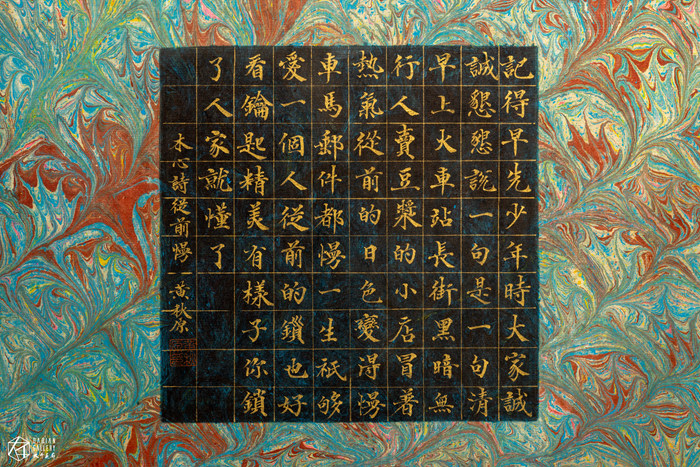 記得早先少年時大家誠
誠懇懇說一句是一句清
早上火車站長街黑暗無
行人賣豆漿的小店冒著
熱氣從前的日色變得慢
車馬郵件都慢一生祇够
愛一個人從前的鎖也好
看鑰匙精美有樣子你鎖
了人家就懂了
木心詩從前慢 黃秋原
DAQIAN
GALLERY